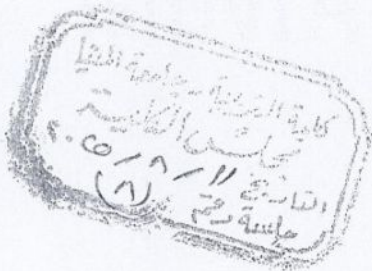 كلية الصيدلة - جامعة المنيا
مجلس الكلية
التاريخ ١١ - ٨ - ٢٠٢٥
جلسة رقم (٨)